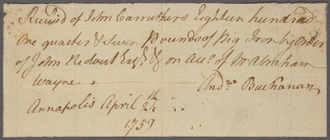 Receiv'd of John Carruthers Eighteen hundred
one quarter & Seven Pounds of Pig Iron by Order
of John Ridout Esqr. & on acct. of Mr. Abraham
Wayne
Andrw. Buchanan
Annapolis April 24th
1759